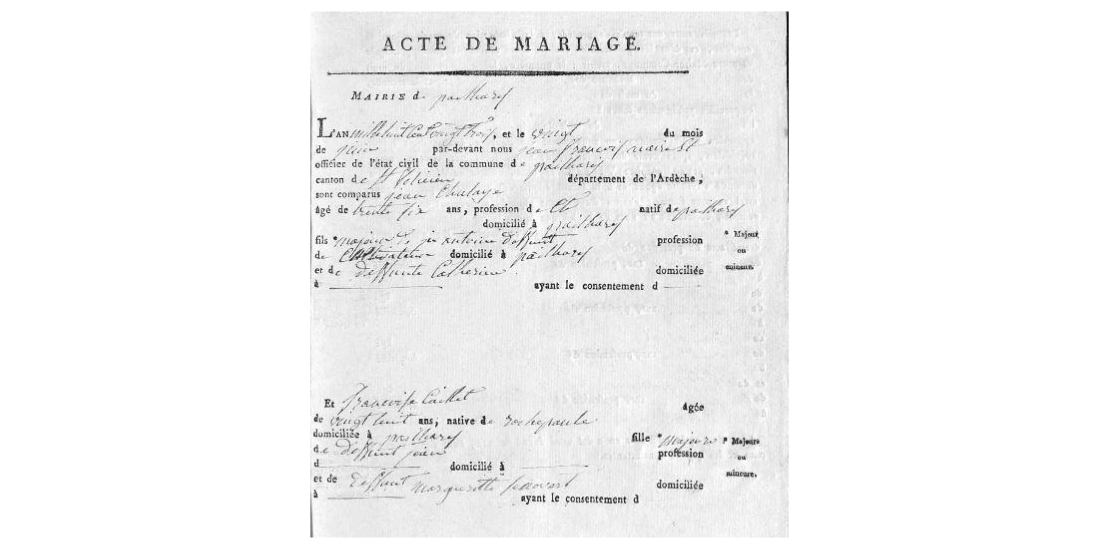 ACTE DE MARIAGE.
MAIRIE de pailharés
L'AN mille huit cent vingt trois, et le vingt du mois
de juin par-devant nous jean françois
officier de l'état civil de la commune de pailharés
canton de St Félicien département de l'Ardèche,
sont comparus jean Chalaye
âgé de trente six ans, profession de natif de pailharés
domicilié à pailharés
fils *majeur antoine deffunt profession * Majeur
de Cultivateur domicilié à pailharés ou
et de deffunte Catherine domiciliée mineure.
à ayant le consentement d
Et françoise Caillet âgée
de vingt huit ans, native de rochepaule
domiciliée à pailharés fille *majeure * Majeure
de deffunt jean profession ou
d domicilié à mineure.
et de deffunte margueritte domiciliée
à ayant le consentement d